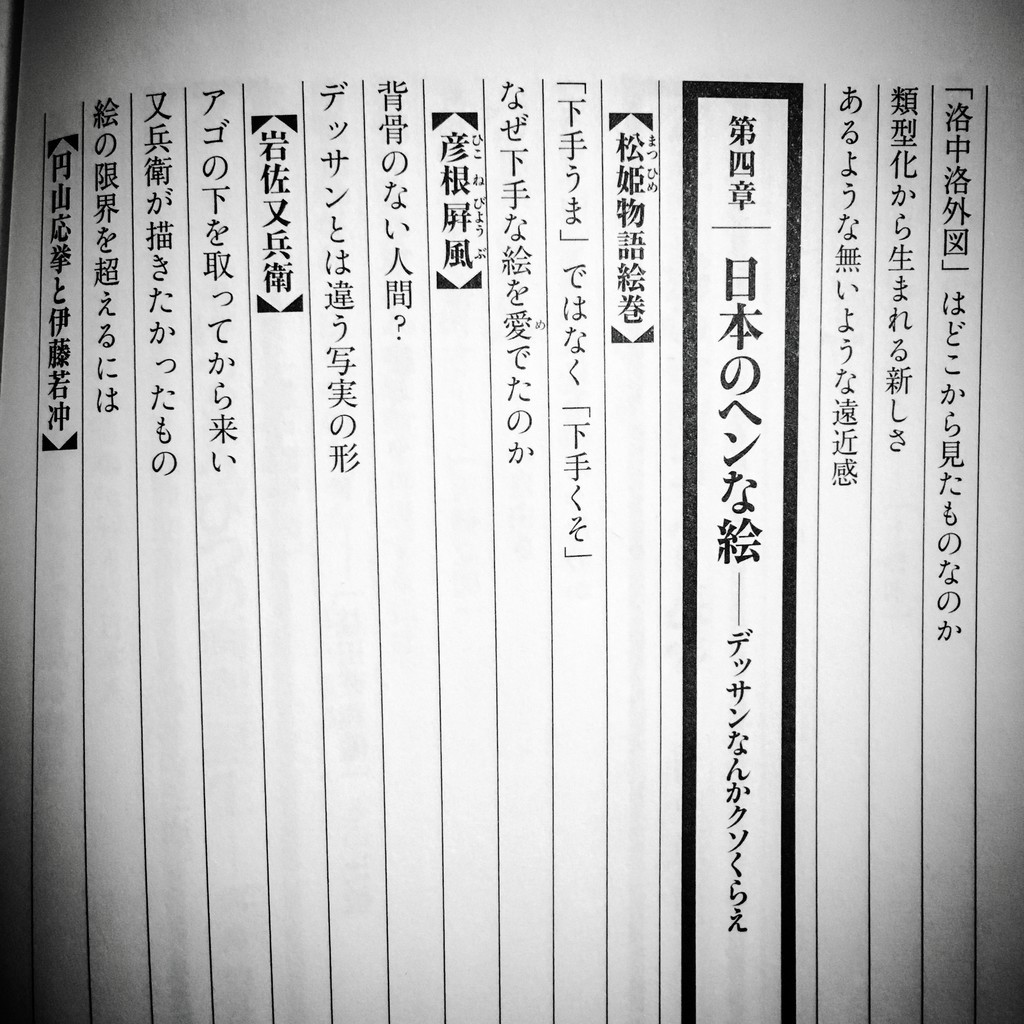 「洛中洛外図」はどこから見たものなのか
類型化から生まれる新しさ
あるような無いような遠近感
第四章―日本のヘンな絵――デッサンなんかクソくらえ
【松姫物語絵巻】
まつひめ
「下手うま」ではなく「下手くそ」
なぜ下手な絵を愛でたのか
め
【彦根屛風】
ひこねびようぶ
背骨のない人間?
デッサンとは違う写実の形
【岩佐又兵衛】
アゴの下を取ってから来い
又兵衛が描きたかったもの
絵の限界を超えるには
【円山応挙と伊藤若冲】